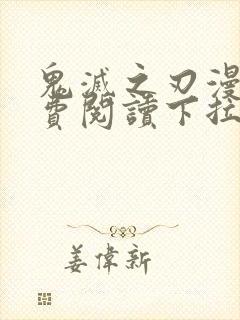 鬼滅之刃漫
費閱讀下拉
姜偉新